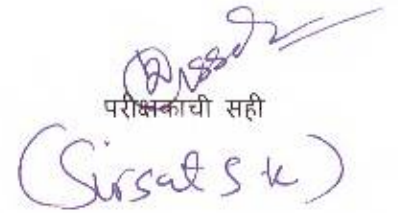 परीक्षकाची सही
(Sirsat S K)